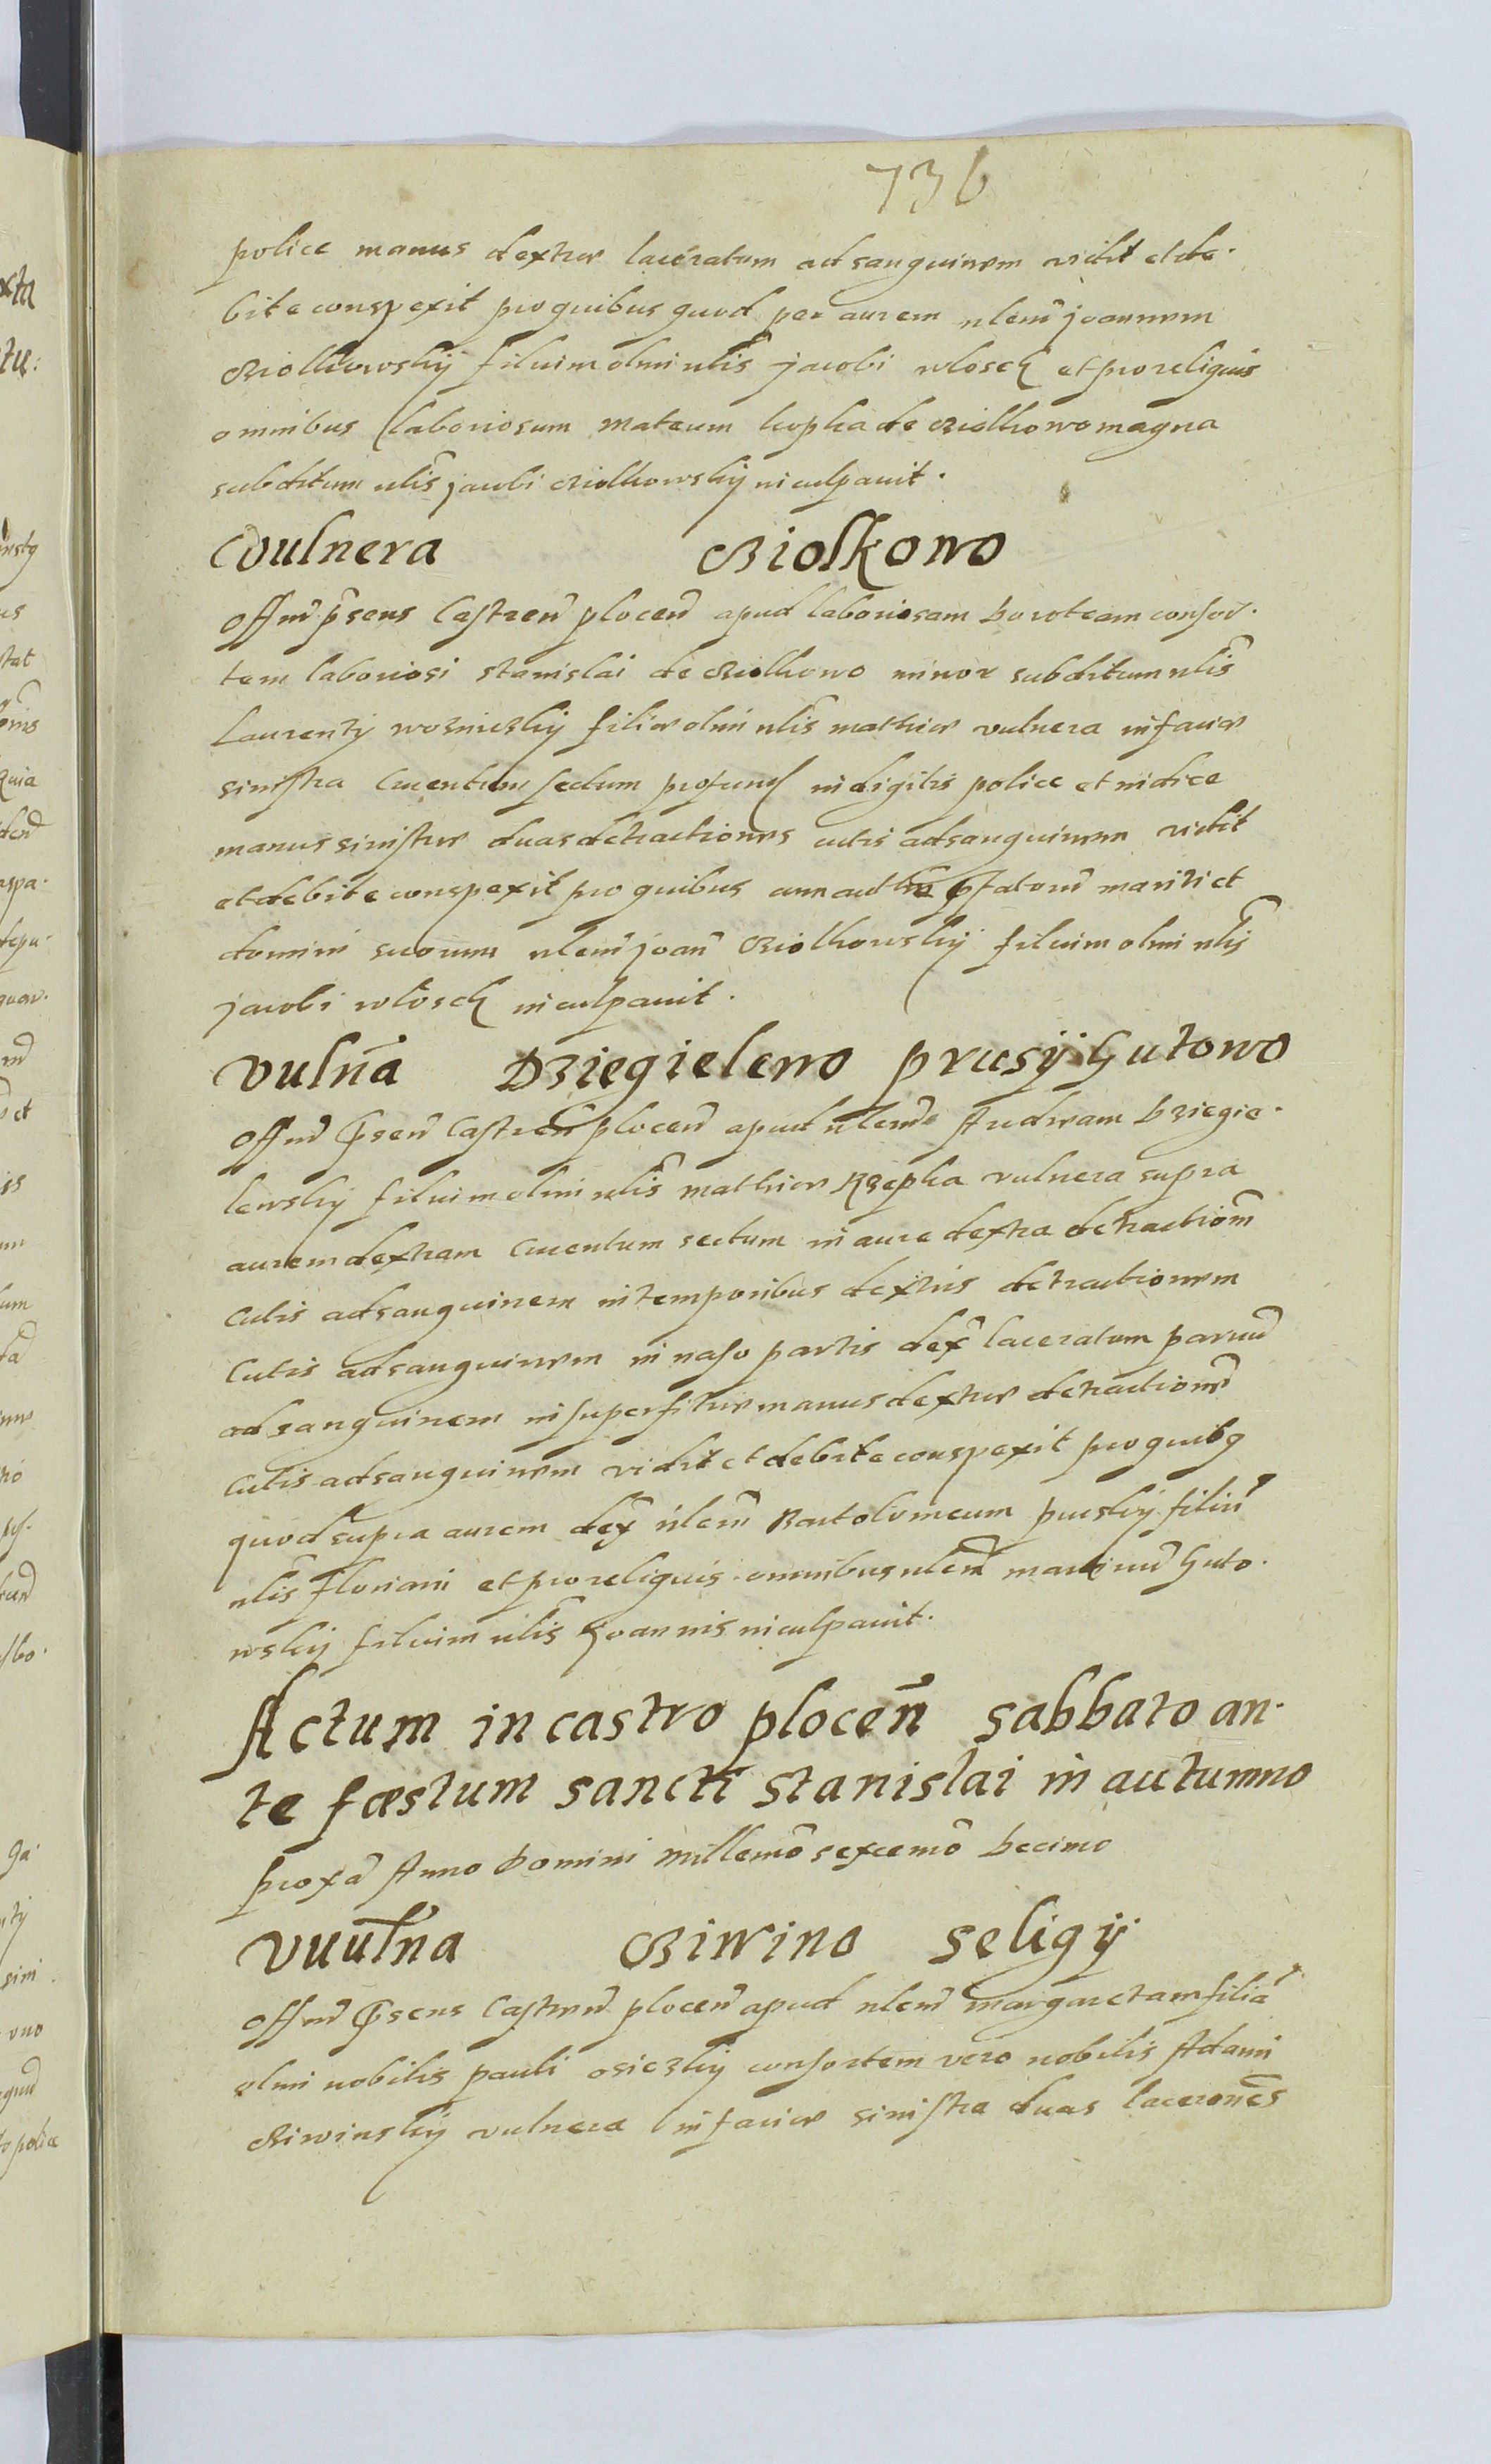 736
police manus dextræ laceratum ad sanguinem vidit et de·
bite conspexit pro quibus quod per aurem nlem̃ joannem
Biolkowskÿ filium olim nlis̃ jacobi wlosek et pro reliquis
omnibus laboriosum mateum kopka de Biolkowo magna
subditum nlis̃ jacobi Biolkowskÿ inculpavit.
Vulnera Biolkowo
Offm̃ p̃sens Castren̄ plocen̄ apud laboriosam Doroteam consor·
tem laboriosi stanislai de Biolkowo minor subditum nlis̃
Laurentÿ woznieskÿ filiæ olim nlis mathiæ vulnera in faciæ
sinistra Cruentum sectum profund in digitis police et indice
manus sinistræ duas detractiones cutis ad sanguinem vidit
et debite conspexit pro quibus mariti et
domini suorum nlem̃ joan̄ Biolkowskÿ filium olim nlis̃
jacobi wlosek inculpavit.
Vuln̄a Dziegielewo prusÿ Gutowo
Offm̃ p̃sen̄ Castren̄ plocen̄ apud nlem̃ Andream Dziegie·
lewskÿ filium olim nlis̃ mathiæ Rzepka vulnera supra
aurem dextram Cruentum sectum in aure dextra detractiom̃
Cutis ad sanguinem in temporibus dextris detractionem
Cutis ad sanguinem in naso partis dex̃ laceratum parvum̃
ad sanguinem in superfitiæ manus dextræ detractionẽ
Cutis ad sanguinem vidit et debite conspexit pro quibq
quod supra aurem dex̃ nlem̃ Bartolomeum pruskÿ filiũ
nlis̃ Floriani et pro reliquis omnibus nlem̃ martinũ Guto·
wskÿ filium nlis̃ Joannis inculpavit.
Actum in castro plocen̄ sabbato an·
te fœstum sancti Stanislai in autumno
proxã Anno Domini millemõ sexcemõ Decimo
Vuuln̄a Biwino Seligÿ
Offm̃ p̃sens Castren̄ plocen̄ apud nlem̃ margaretam filiã
olim nobilis pauli osieckÿ consortem vero nobilis Adami
Biwinskÿ vulnera in faciæ sinistra duas laceronẽs